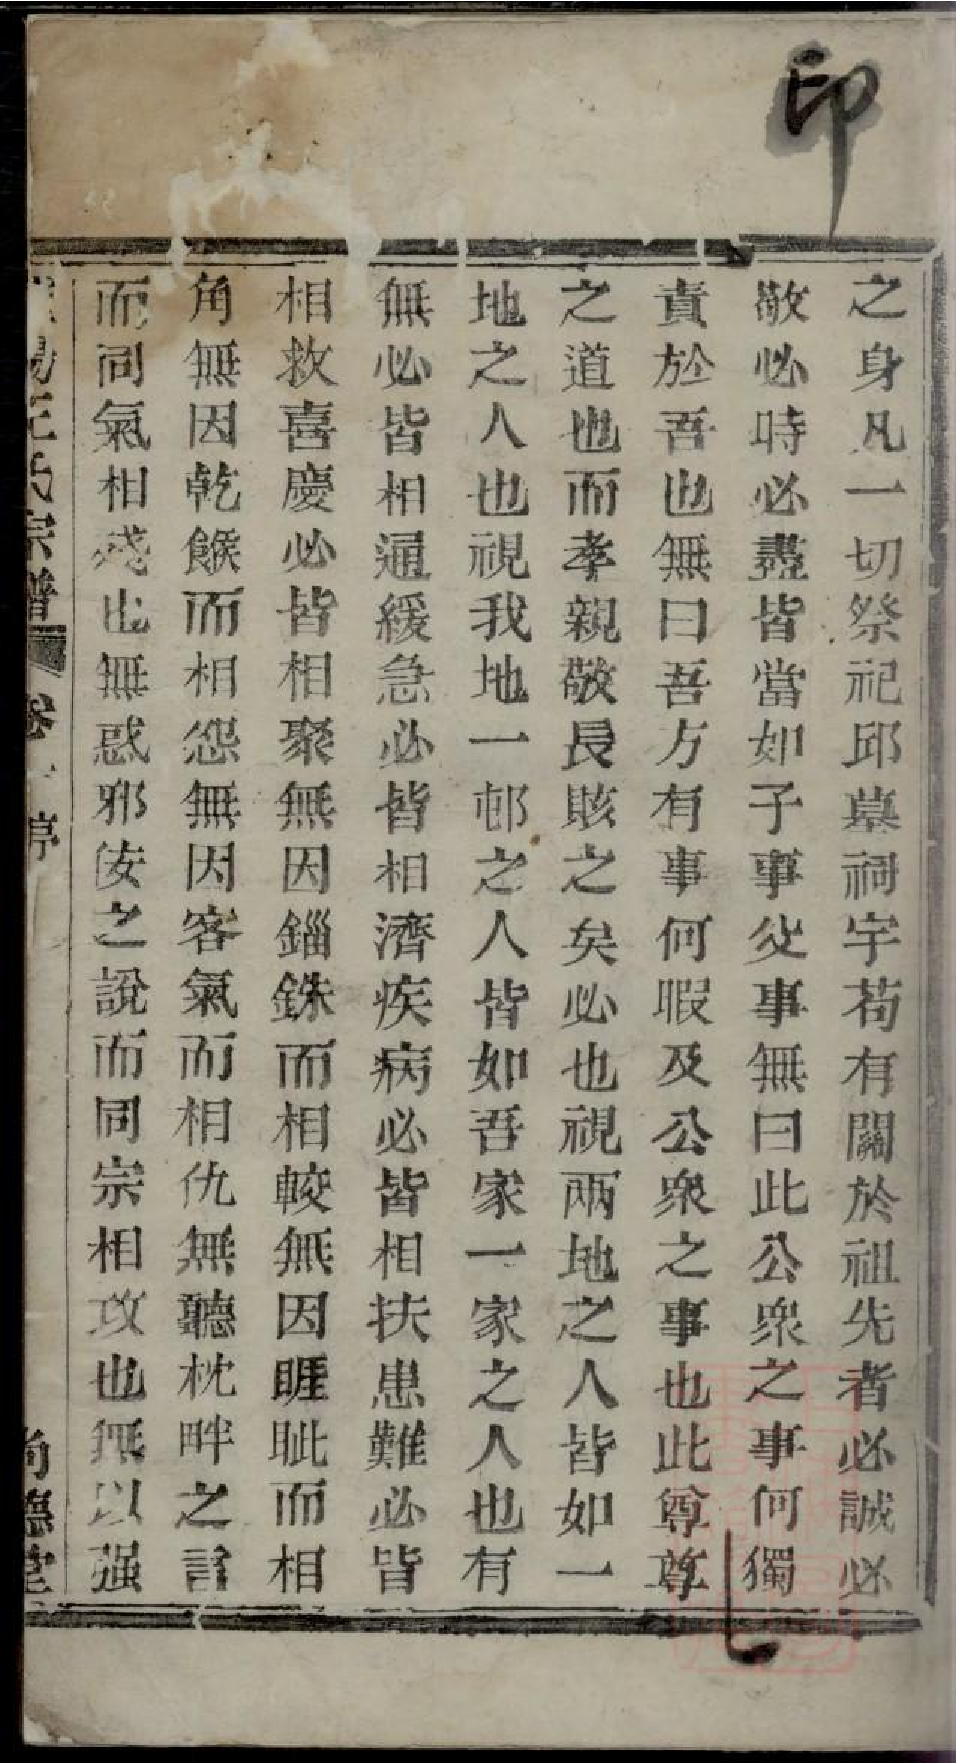 印
之身凡一切祭祀邱墓祠宇苟有關於祖先者必誠必
敬必時必盡皆當如子事父事無曰此公衆之事何獨
責於吾也無曰吾方有事何暇及公衆之事也此尊尊
之道也而孝親敬長賅之矣必也視兩地之人皆如一
地之人也視我地一邨之人皆如吾家一家之人也有
無必皆相通緩急必皆相濟疾病必皆相扶患難必皆
相救喜慶必皆相聚無因錙銖而相較無因睚眦而相
角無因乾餱而相怨無因客氣而相仇無聽枕畔之言
而同氣相殘也無惑邪侫之說而同宗相攻也無以强
陽王氏宗譜 卷一 序 尚德堂